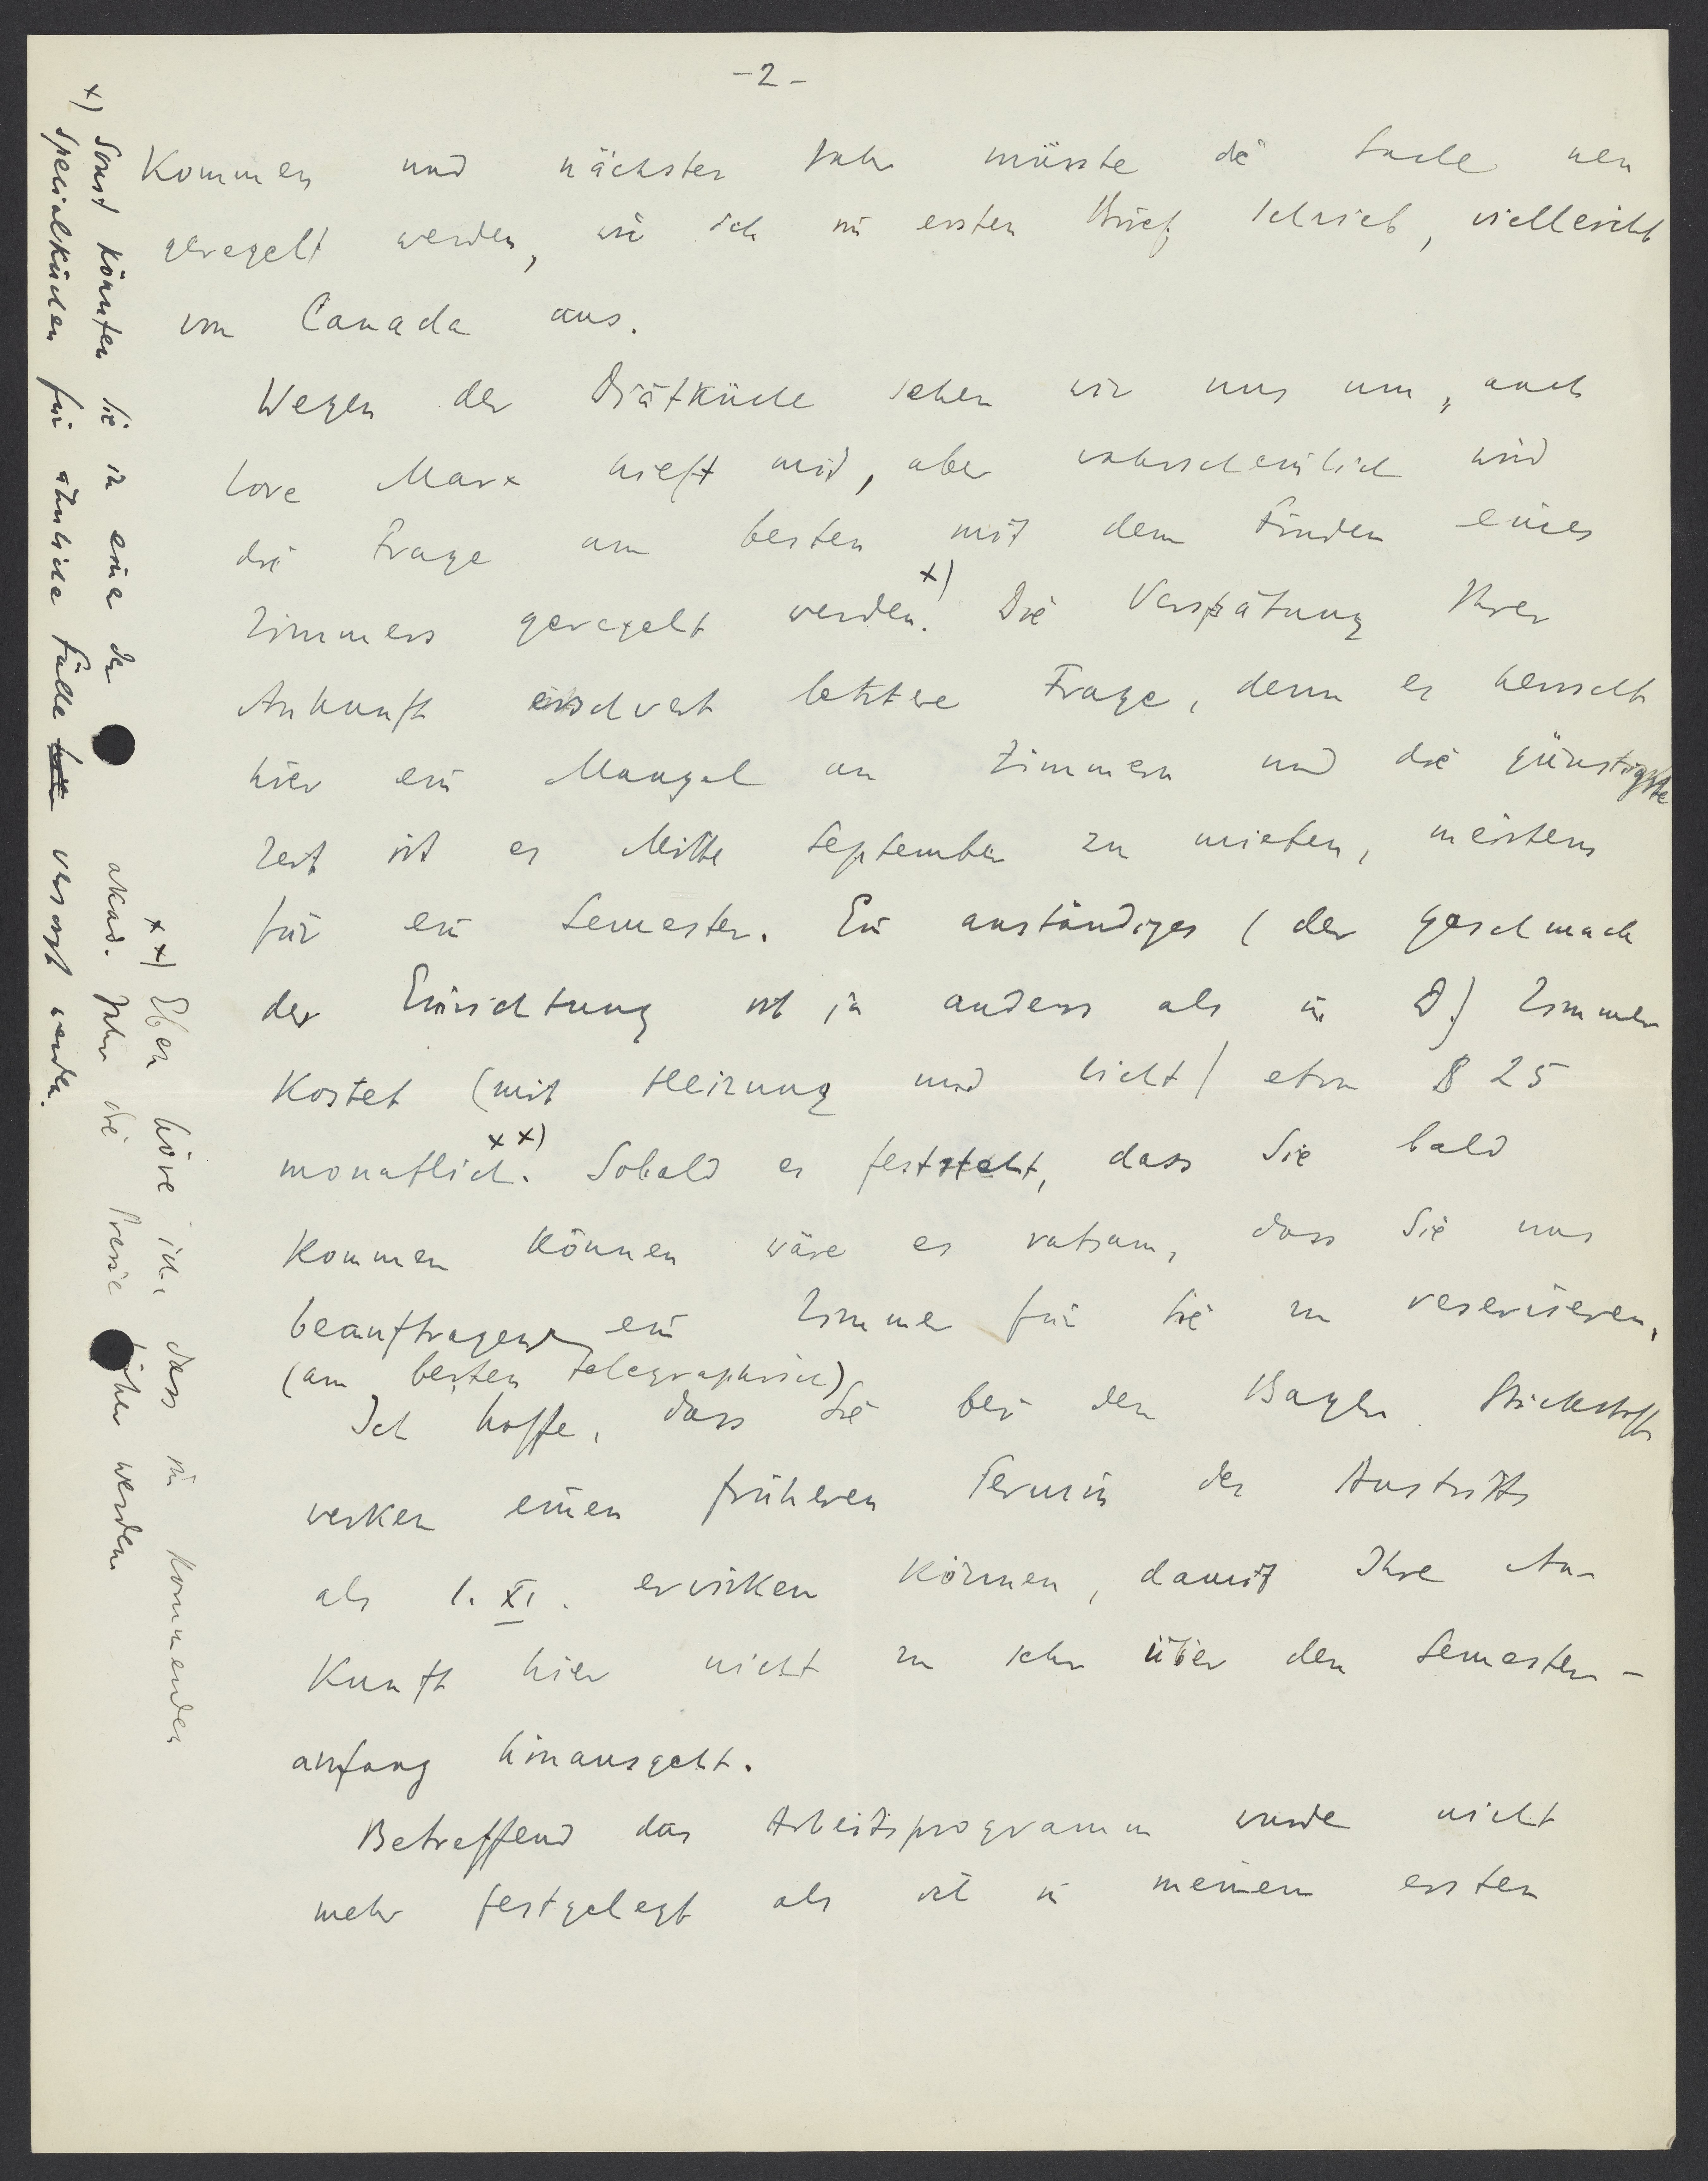 - 2 -
Kommen und nächstes Jahr müsste die Sache neu
geregelt werden, wie ich im ersten Brief schrieb, vielleicht
von Canada aus.
Wegen der Diätküche sehen wir uns um, auch
Lore Marx hielft mit, aber wahrscheinlich wird
die Frage am besten mit dem Finden eines
Zimmers geregelt werden. x) Die Verspätung Ihrer
Ankunft erschwert letztere Frage, denn es herrscht
hier ein Mangel an Zimmern und die günstigste
Zeit ist es Mitte September zu mieten, meistens
für ein Semester. Ein anständiges (der Geschmack
der Einrichtung ist ja anders als in D.) Zimmer
Kostet (mit Heizung und Licht) etwa $ 25
monatlich. xx) Sobald es feststeht, dass Sie bald
Kommen Können wäre es ratsam, dass Sie uns
beauftragen ein Zimmer für Sie zu reservieren,
(am besten telegraphisch)
Ich hoffe, dass Sie bei den Bayer. Stickstoff
werken einen früheren Termin des Austritts
als 1. XI. erwirken Können, damit Ihre An-
Kunft hier nicht zu sehr über den Semester-
anfang hinausgeht.
Betreffend das Arbeitsprogramm wurde nicht
mehr festgelegt als ich in meinem ersten
x) Sonst könnten Sie in eine der
Specialküchen für ähnliche Fälle versorgt werden.
xx) Eben höre ich, dass im Kommenden
akad. Jahr die Preise höher werden